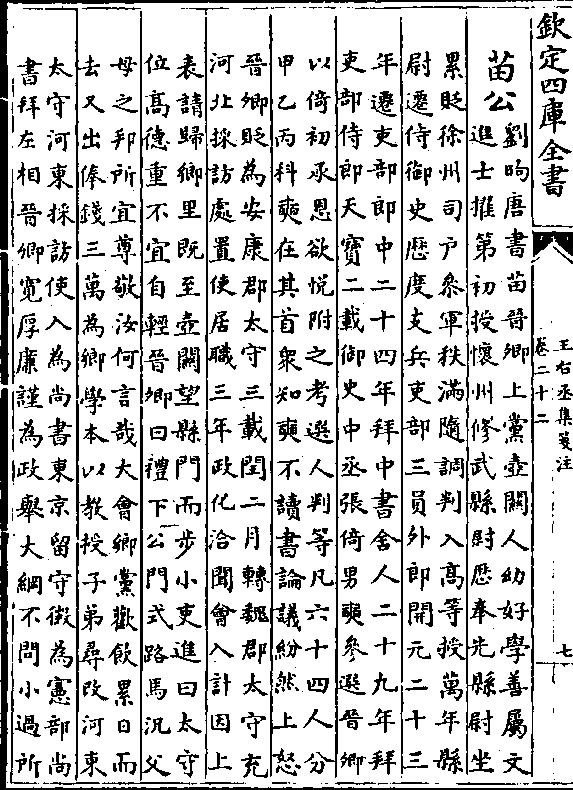 欽定四庫全書
王右丞集箋注
卷二十二
七
苗公
劉昫唐書苗晉卿上黨壺關人幼好學善屬文
進士擢第初授懷州修武縣尉歷奉先縣尉坐
累貶徐州司户參軍秩滿隨調判入髙等授萬年縣
尉遷侍御史歷度支兵吏部三員外郎開元二十三
年遷吏部郎中二十四年拜中書舍人二十九年拜
吏部侍郎天寶二載御史中丞張倚男奭參選晉卿
以倚初承恩欲悅附之考選人判等凡六十四人分
甲乙丙科奭在其首衆知奭不讀書論議紛然上怒
晉卿貶為安康郡太守三載閏二月轉魏郡太守充
河北採訪處置使居職三年政化洽聞會入計因上
表請歸鄉里既至壺關望縣門而步小吏進曰太守
位髙德重不宜自輕晉卿曰禮下公門式路馬況父
母之邦所宜尊敬汝何言哉大會鄉黨歡飲累日而
去又出俸錢三萬為鄉學本以教授子弟尋改河東
太守河東採訪使入為尚書東京留守徵為憲部尚
書拜左相晉卿寛厚廉謹為政舉大綱不問小過所